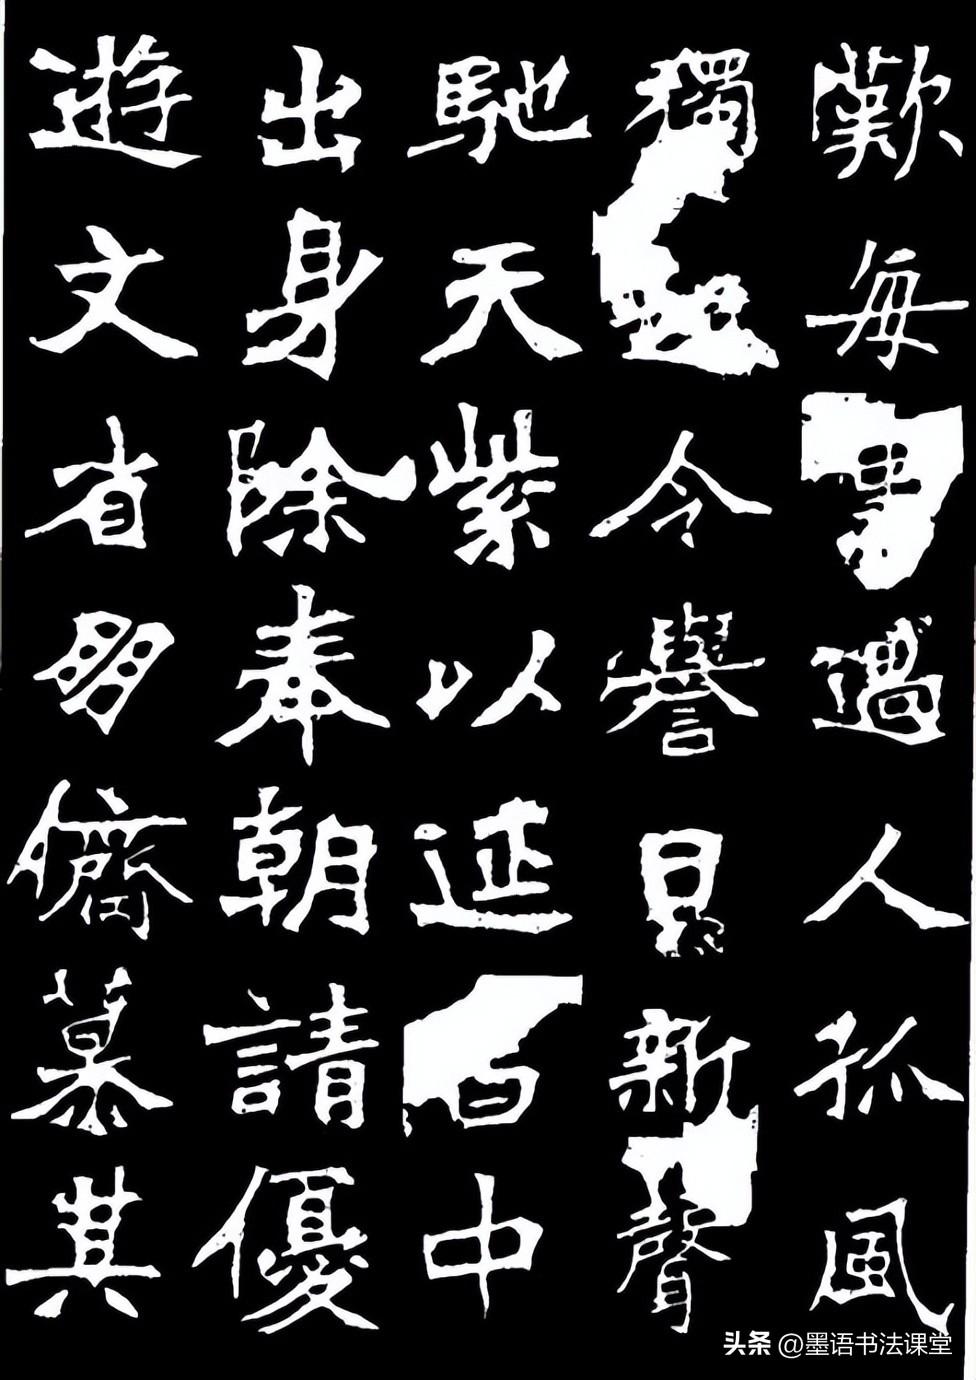 歎每過人孤風
獨令譽日新聲
馳天紫以延昌中
出身除奉朝請優
遊文省朋儕慕其
头条 @墨语书法课堂